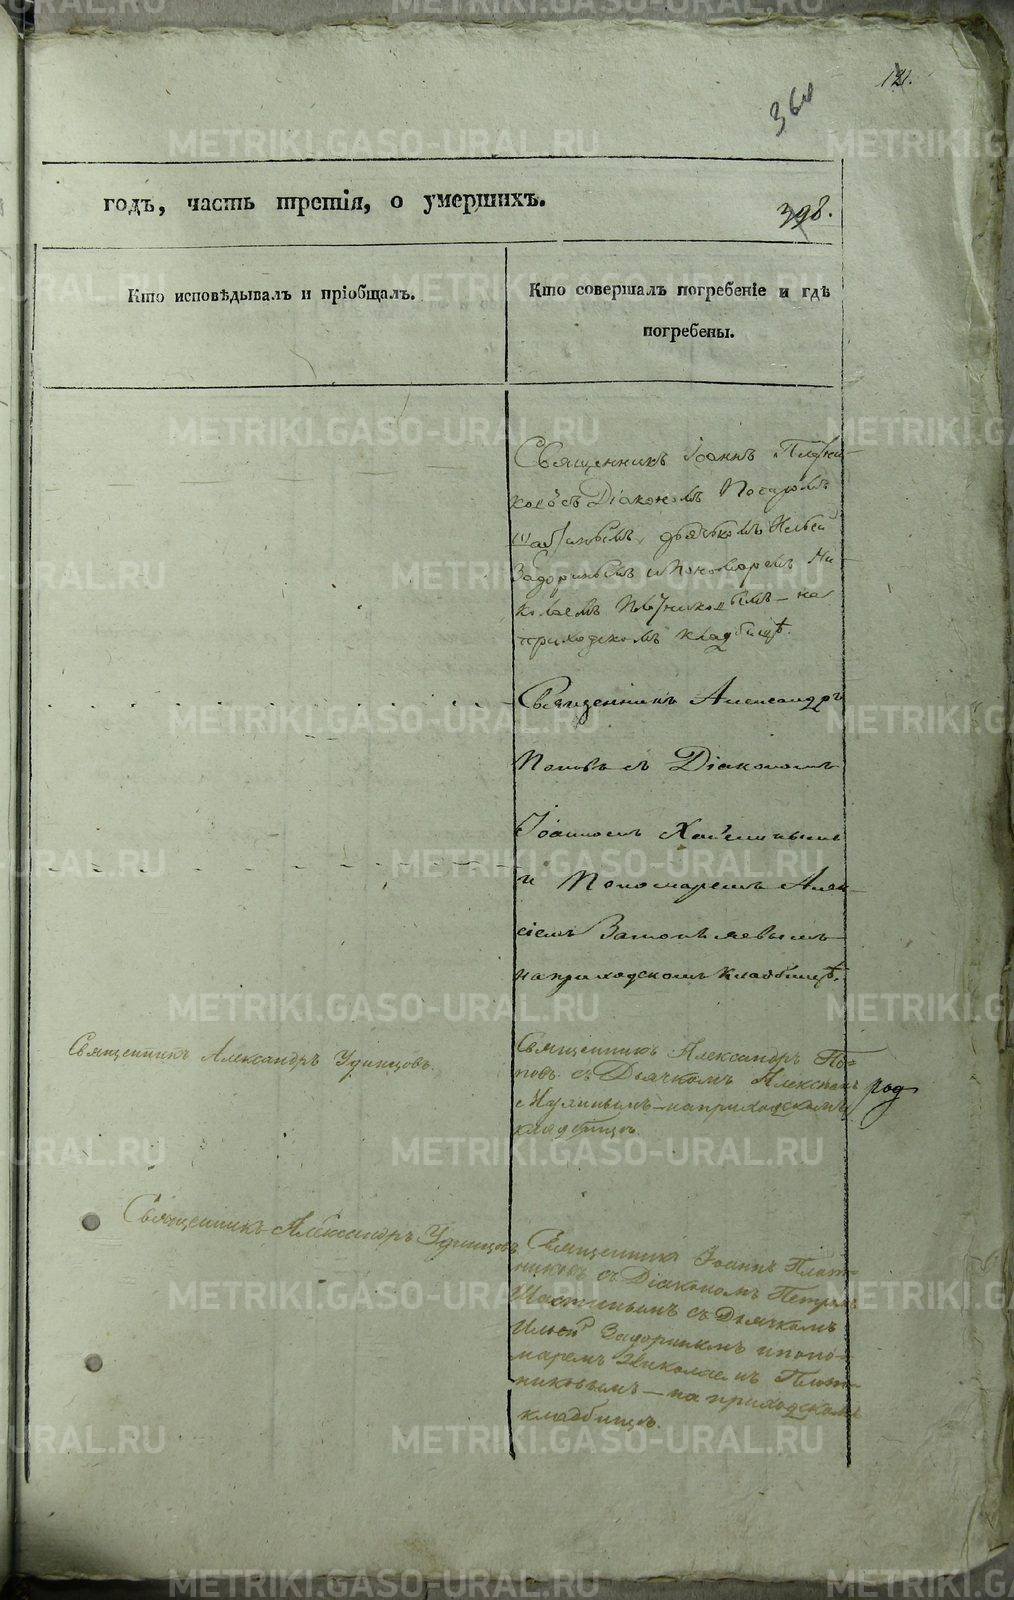 131.
360
годъ, часть третія, о умершихъ.
398.
Кто исповѣдывалъ и пріобщалъ.
Кто совершалъ погребеніе и гдѣ
погребены.
Священникъ Іоаннъ
съ Діакономъ Петромъ
дьячкомъ Ильей
Задоринымъ и Пономаремъ Ни-
колаемъ Плотниковымъ – на
приходскомъ кладбищѣ.
Священникъ Александръ
Поповъ съ Діакономъ
Іоанномъ
и Пономаремъ Алек-
сіемъ
на приходскомъ кладбищѣ.
Священникъ Александръ Удинцовъ.
Священникъ Александръ По-
повъ съ Дьячкомъ
на приходскомъ
кладбищѣ.
род
Священникъ Александръ Удинцовъ
Священникъ Іоаннъ Плот-
никовъ съ Діакономъ Петромъ
съ Дьячкомъ
Ильей Задоринымъ и поно-
маремъ Николаемъ Плот-
никовымъ – на приходскомъ
кладбищѣ.
METRIKI.GASO-URAL.RU